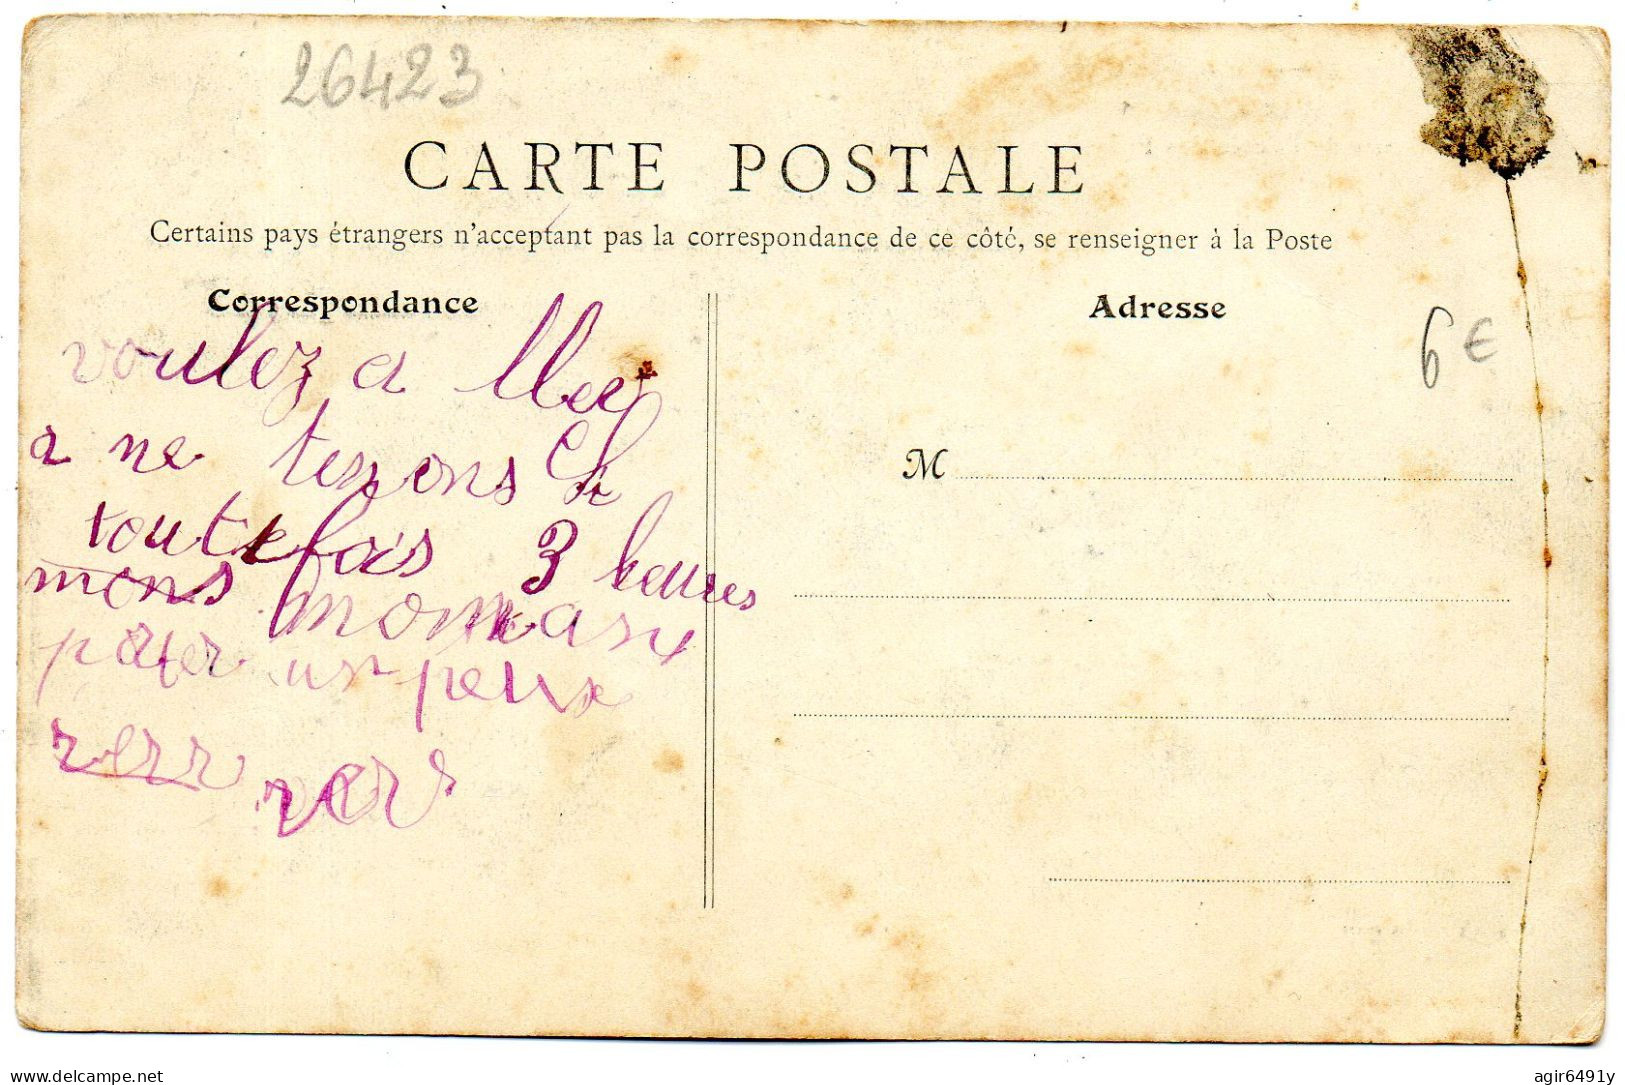 26423
CARTE POSTALE
Certains pays étrangers n'acceptant pas la correspondance de ce côté, se renseigner à la Poste
Correspondance
Adresse
voulez a ller
a ne tenons
toutefois 3 heures
mons
un peux
6 €
M
delcampe.net
agir6491y